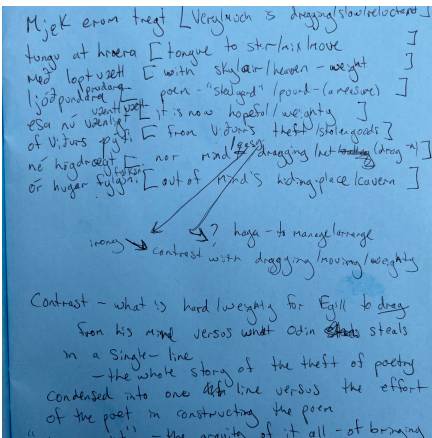 Mjǫk erom tregt [Very/much is dragging/slow/reluctant]
tungu at hrœra [tongue to stir/mix/move]
Með loptvætt [with sky/air/heaven - weight]
ljóðpundara [poem - "steelyard"/pound - (a measure)]
esa nú vænligt [it is now hopeful/weighty]
of Viðurs þýfi [From Viðurr's theft/stolen goods]
né hógdrœgt [nor mind/easy dragging/net (drag-n)]
ór hugar fylgsni [out of mind's hiding-place/cavern]
? haga - to manage/arrange
irony contrast with dragging/moving/weighty
Contrast - what is hard/weighty for Egill to drag
from his mind versus what Odin steals
in a single-line
- the whole story of the theft of poetry
condensed into one line versus the effort
of the poet in constructing the poem
- the gravity of it all - of bringing